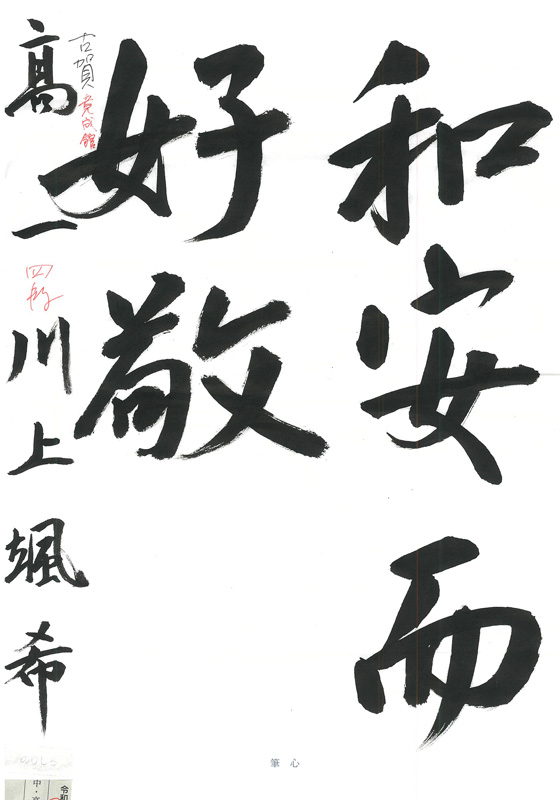 和安而
好敬
古賀竟成館
高一 四段 川上颯希
心筆
令和
中・高